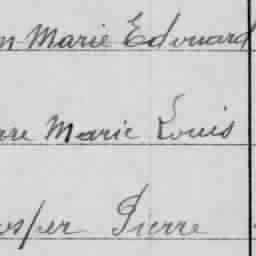 n Marie Edouard
rre Marie Louis
osper Pierre